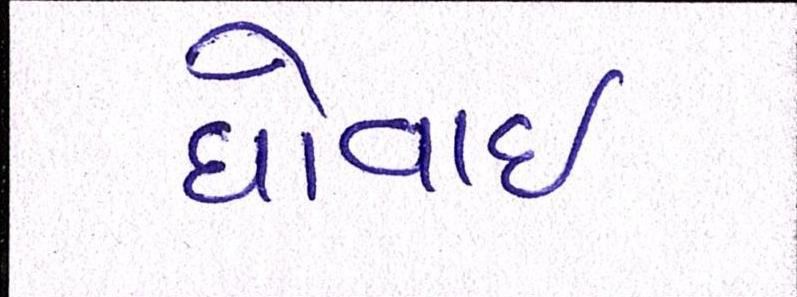 ધોવાઈ